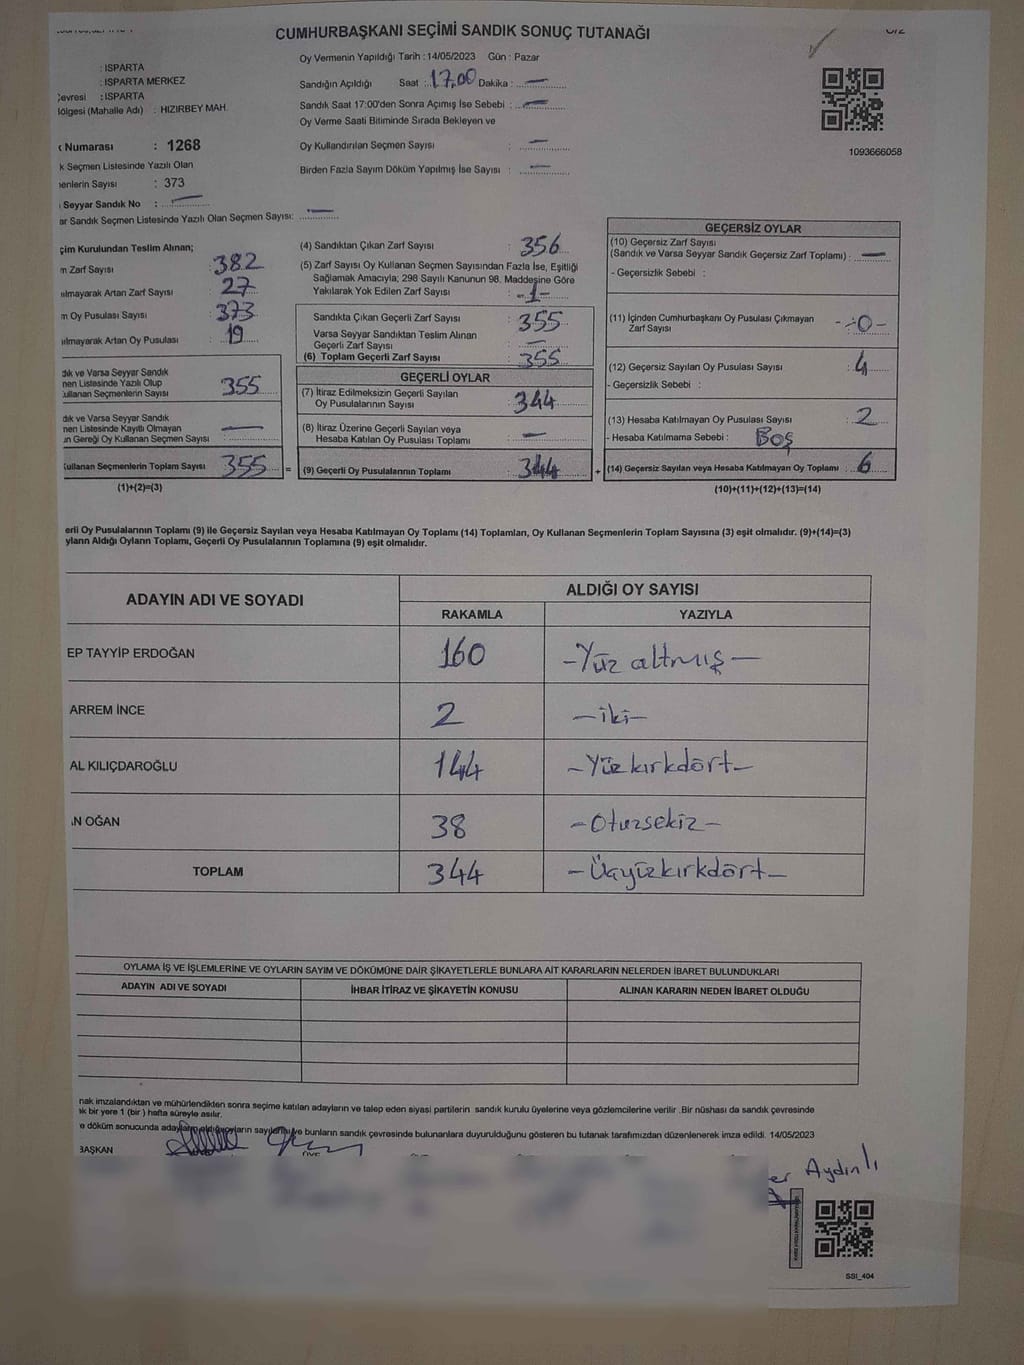 CUMHURBAŞKANI SEÇİMİ SANDIK SONUÇ TUTANAĞI
Oy Vermenin Yapıldığı Tarih : 14/05/2023 Gün : Pazar
: ISPARTA
: ISPARTA MERKEZ
Çevresi : ISPARTA
ölgesi (Mahalle Adı) : HIZIRBEY MAH.
Numarası : 1268
k Seçmen Listesinde Yazılı Olan
menlerin Sayısı : 373
Seyyar Sandık No :
ar Sandık Seçmen Listesinde Yazılı Olan Seçmen Sayısı:
Sandığın Açıldığı Saat : 17,00 Dakika : —
Sandık Saat 17:00'den Sonra Açımış İse Sebebi : —
Oy Verme Saati Bitiminde Sırada Bekleyen ve
Oy Kullandırılan Seçmen Sayısı : —
Birden Fazla Sayım Döküm Yapılmış İse Sayısı : —
1093666058
çim Kurulundan Teslim Alınan;
m Zarf Sayısı : 382
ılmayarak Artan Zarf Sayısı : 27
m Oy Pusulası Sayısı : 373
ılmayarak Artan Oy Pusulası : 19
dık ve Varsa Seyyar Sandık
nen Listesinde Yazılı Olup
ullanan Seçmenlerin Sayısı : 355
dık ve Varsa Seyyar Sandık
nen Listesinde Kayıtlı Olmayan
ın Gereği Oy Kullanan Seçmen Sayısı : —
Kullanan Seçmenlerin Toplam Sayısı : 355 =
(1)+(2)=(3)
(4) Sandıktan Çıkan Zarf Sayısı : 356
(5) Zarf Sayısı Oy Kullanan Seçmen Sayısından Fazla İse, Eşitliği
Sağlamak Amacıyla; 298 Sayılı Kanunun 98. Maddesine Göre
Yakılarak Yok Edilen Zarf Sayısı : -1-
Sandıkta Çıkan Geçerli Zarf Sayısı : 355
Varsa Seyyar Sandıktan Teslim Alınan
Geçerli Zarf Sayısı : —
(6) Toplam Geçerli Zarf Sayısı : 355
GEÇERLİ OYLAR
(7) İtiraz Edilmeksizin Geçerli Sayılan
Oy Pusulalarının Sayısı : 344
(8) İtiraz Üzerine Geçerli Sayılan veya
Hesaba Katılan Oy Pusulası Toplamı : —
(9) Geçerli Oy Pusulalarının Toplamı : 344 +
GEÇERSİZ OYLAR
(10) Geçersiz Zarf Sayısı
(Sandık ve Varsa Seyyar Sandık Geçersiz Zarf Toplamı) : —
- Geçersizlik Sebebi :
(11) İçinden Cumhurbaşkanı Oy Pusulası Çıkmayan
Zarf Sayısı : -0-
(12) Geçersiz Sayılan Oy Pusulası Sayısı : 4
- Geçersizlik Sebebi :
(13) Hesaba Katılmayan Oy Pusulası Sayısı : 2
- Hesaba Katılmama Sebebi : Boş
(14) Geçersiz Sayılan veya Hesaba Katılmayan Oy Toplamı : 6
(10)+(11)+(12)+(13)=(14)
erli Oy Pusulalarının Toplamı (9) ile Geçersiz Sayılan veya Hesaba Katılmayan Oy Toplamı (14) Toplamları, Oy Kullanan Seçmenlerin Toplam Sayısına (3) eşit olmalıdır. (9)+(14)=(3)
yların Aldığı Oyların Toplamı, Geçerli Oy Pusulalarının Toplamına (9) eşit olmalıdır.
ADAYIN ADI VE SOYADI ALDIĞI OY SAYISI
RAKAMLA YAZIYLA
EP TAYYİP ERDOĞAN 160 -Yüz altmış-
ARREM İNCE 2 -iki-
AL KILIÇDAROĞLU 144 -Yüzkırkdört-
N OĞAN 38 -Otuzsekiz-
TOPLAM 344 -Üçyüzkırkdört-
OYLAMA İŞ VE İŞLEMLERİNE VE OYLARIN SAYIM VE DÖKÜMÜNE DAİR ŞİKAYETLERLE BUNLARA AİT KARARLARIN NELERDEN İBARET BULUNDUKLARI
ADAYIN ADI VE SOYADI İHBAR İTİRAZ VE ŞİKAYETİN KONUSU ALINAN KARARIN NEDEN İBARET OLDUĞU
nak imzalandıktan ve mühürlendikten sonra seçime katılan adayların ve talep eden siyasi partilerin sandık kurulu üyelerine veya gözlemcilerine verilir .Bir nüshası da sandık çevresinde
ık bir yere 1 (bir ) hafta süreyle asılır.
e döküm sonucunda adayların aldığı oyların sayıları ve bunların sandık çevresinde bulunanlara duyurulduğunu gösteren bu tutanak tarafımızdan düzenlenerek imza edildi. 14/05/2023
BAŞKAN
er Aydınlı
SSI_404